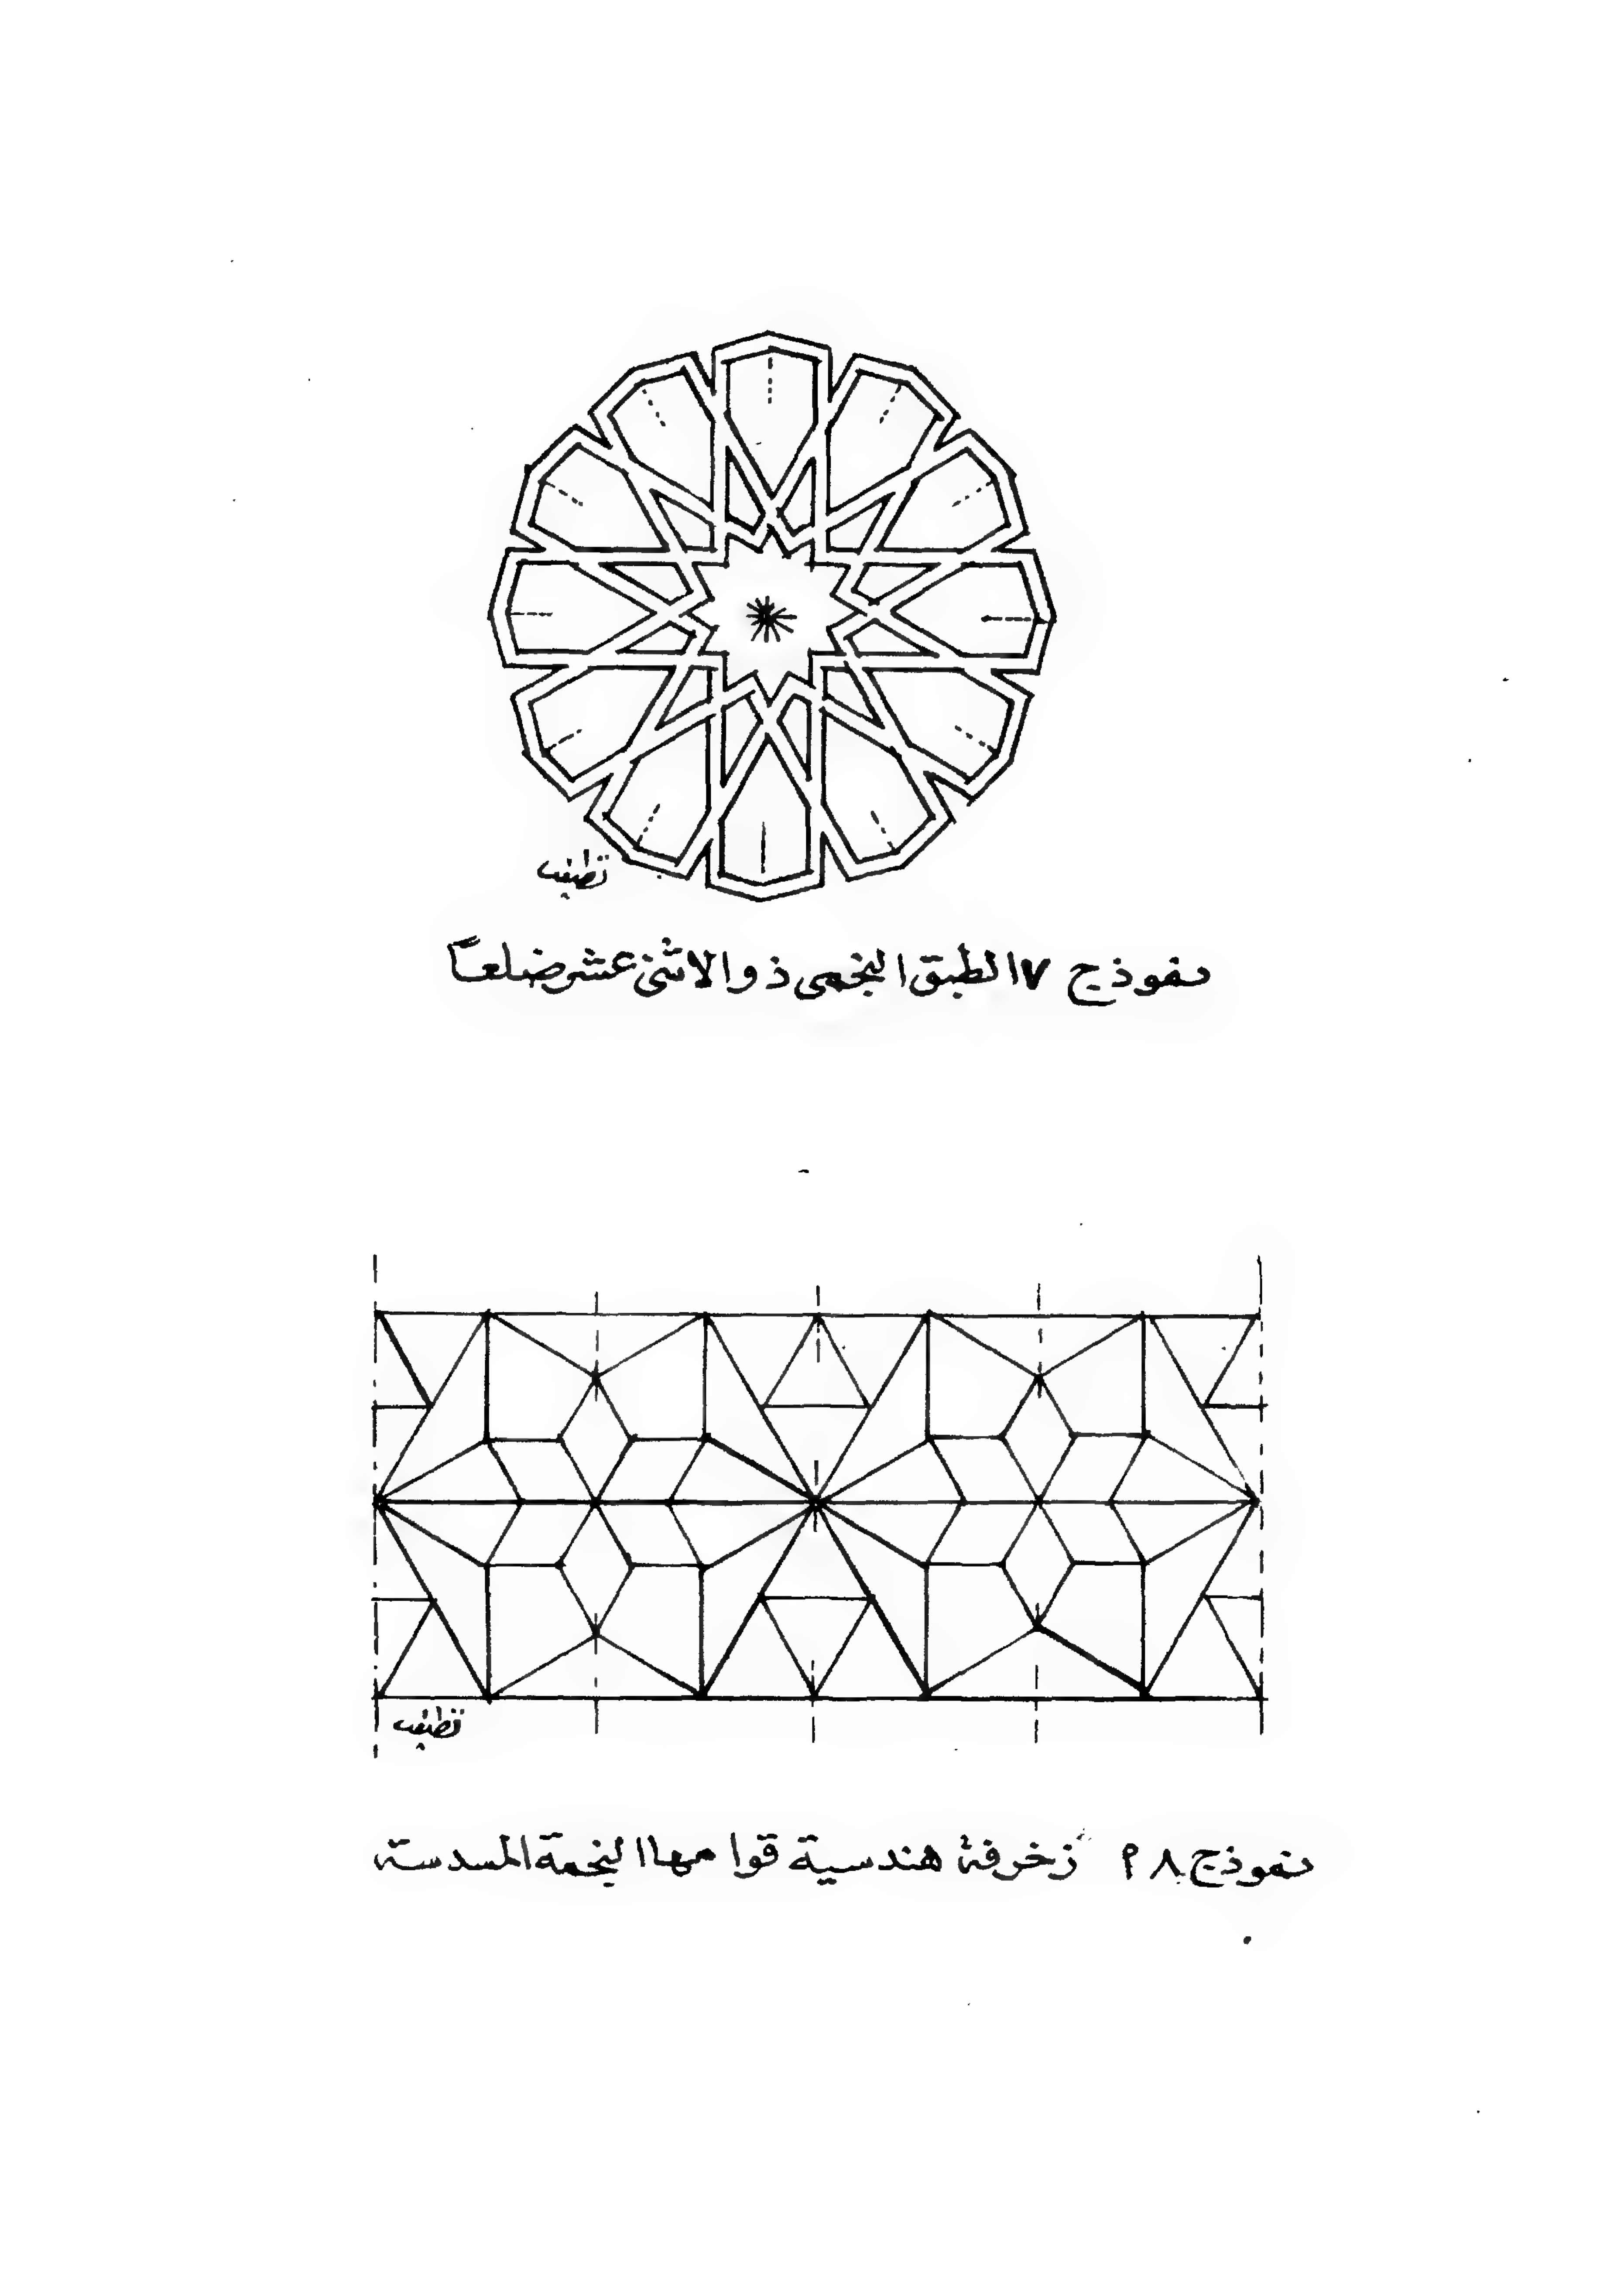 نموذج ٧ الطبق النجمى ذو الاثنى عشر ضلعاً
نموذج ٨ زخرفة هندسية قوامها النجمة المسدسة